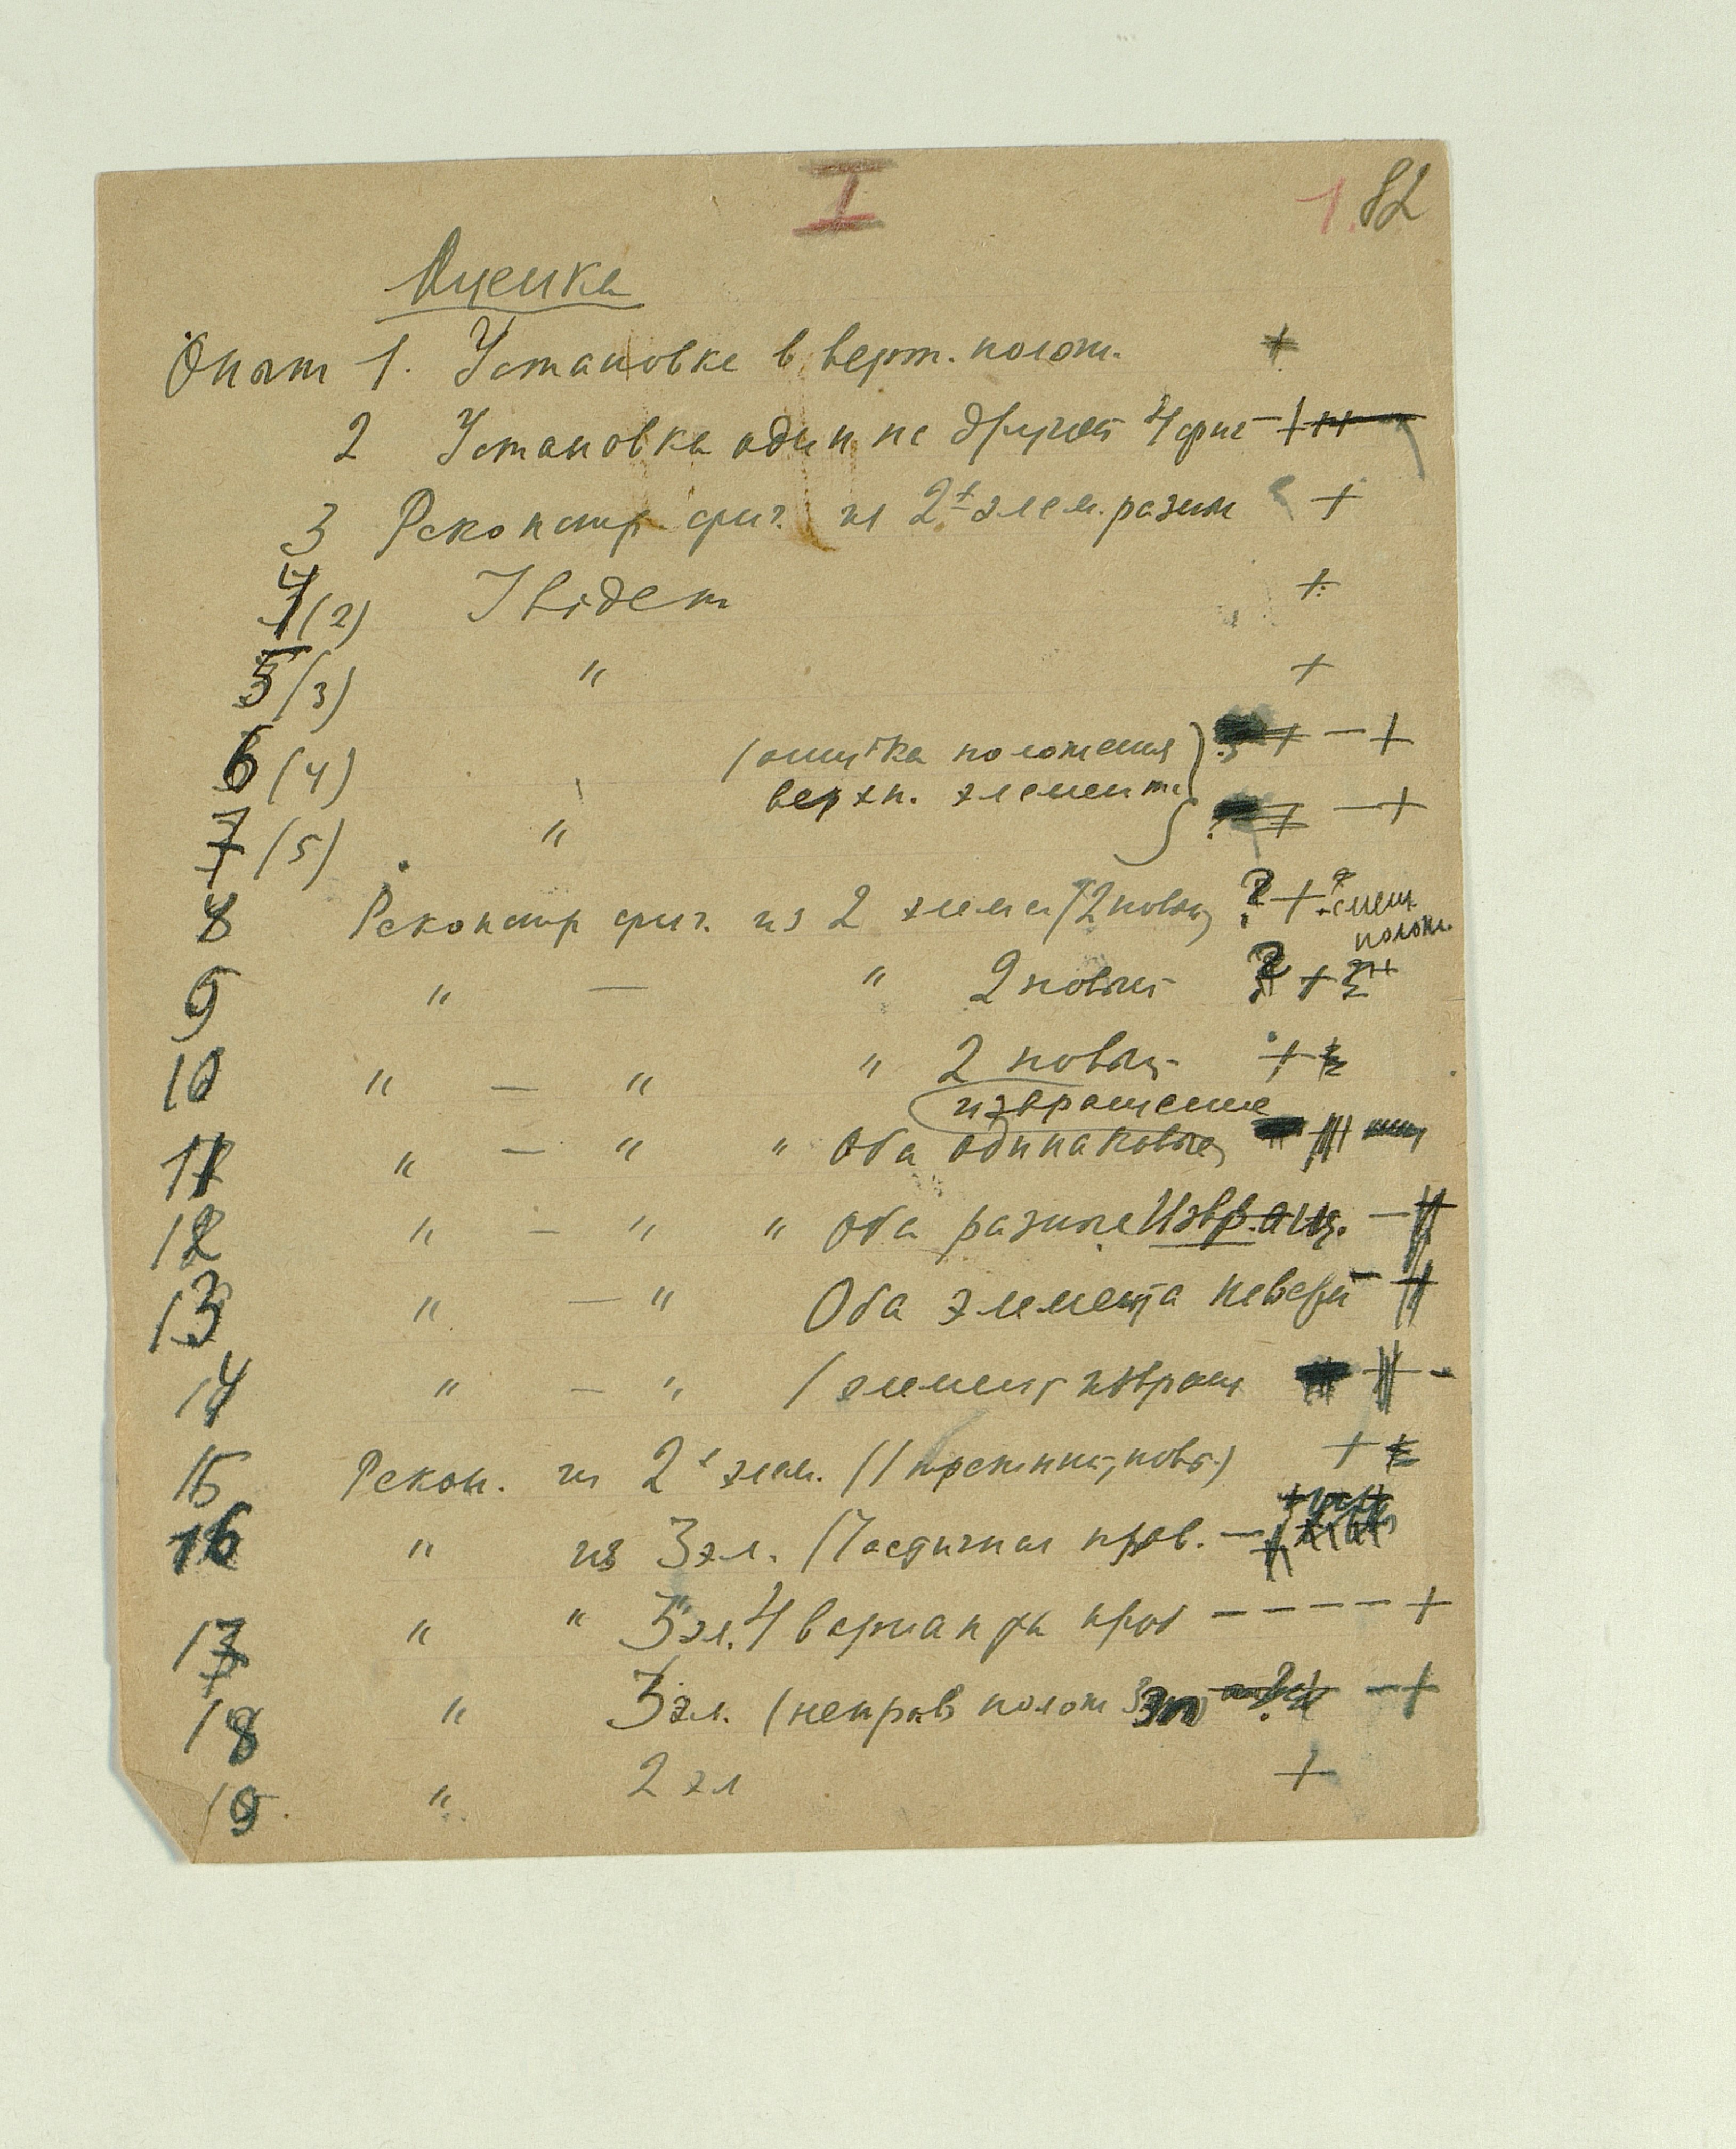 I
1. 82
Оценка
Опыт 1. Установка в верт. полож. +
2 Установка один на другой 4 фиг - +
3 Реконстр фиг. из 2х элем. разн +
4 (2) Ibidem +
5 (3) " +
6 (4) (ошибка положения - +
верхн. элемента)
7 (5) " - +
8 Реконстр фиг. из 2 элемен (2 новых) ? +
смеш.
полож.
9 " — " 2 новых ? +
10 " — " " 2 новых +
извращение
11 " — " " Оба одинаковые
12 " — " " Оба разные Извращ. —
13 " — " Оба элемента неверн
14 " — " 1 элемент извращ
15 Рекон. из 2х элем. +
16 " из 3 эл. (Частичная пров. —
17 " " 3 эл. 4 варианта проб — — — — +
18 " 3 эл. (неправ полож — +
19 " 2 эл +